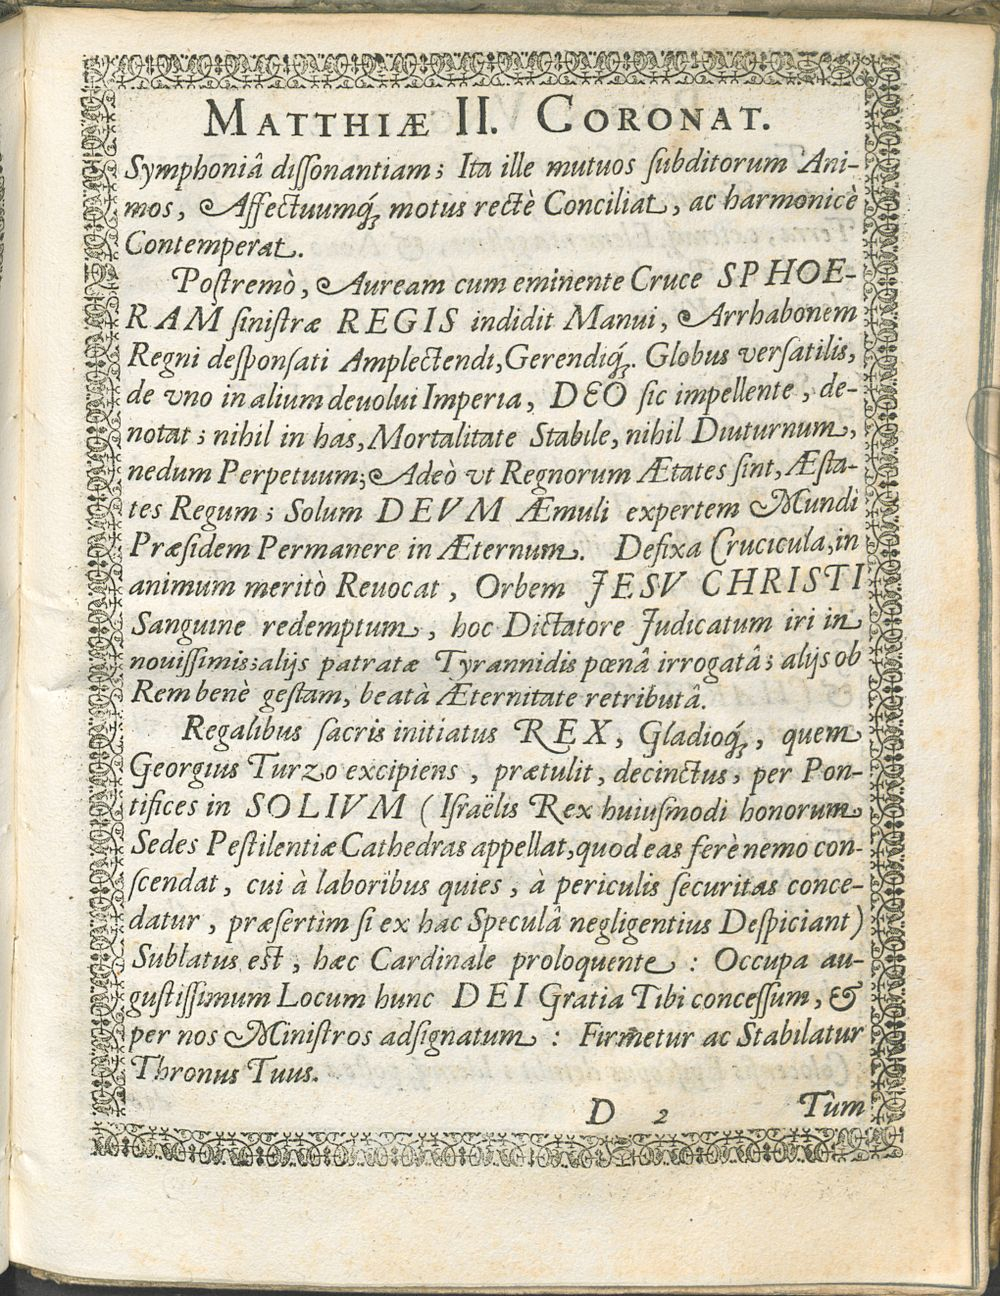 MATTHIÆ II. CORONAT.
Symphoniâ dissonantiam; Ita ille mutuos subditorum Ani-
mos, Affectuumq́ꝫ motus rectè Conciliat, ac harmonicè
Contemperat.
Postremò, Auream cum eminente Cruce SPHOE-
RAM sinistræ REGIS indidit Manui, Arrhabonem
Regni desponsati Amplectendi, Gerendiq́ꝫ. Globus versatilis,
de vno in alium deuolui Imperia, DEO sic impellente, de-
notat; nihil in has, Mortalitate Stabile, nihil Diuturnum,
nedum Perpetuum; Adeò vt Regnorum Ætates sint, Æsta-
tes Regum; Solum DEVM Æmuli expertem Mundi
Præsidem Permanere in Æternum. Defixa Crucicula, in
animum meritò Reuocat, Orbem JESV CHRISTI
Sanguine redemptum, hoc Dictatore Judicatum iri in
nouissimis; alijs patratæ Tyrannidis pœnâ irrogatâ; alijs ob
Rem benè gestam, beatà Æternitate retributâ.
Regalibus sacris initiatus REX, Gladioq́ꝫ, quem
Georgius Turzo excipiens, prætulit, decinctus, per Pon-
tifices in SOLIVM (Israëlis Rex huiusmodi honorum
Sedes Pestilentiæ Cathedras appellat, quod eas ferè nemo con-
scendat, cui à laboribus quies, à periculis securitas conce-
datur, præsertim si ex hac Speculâ negligentius Despiciant)
Sublatus est, hæc Cardinale proloquente: Occupa au-
gustissimum Locum hunc DEI Gratia Tibi concessum, &
per nos Ministros adsignatum: Firmetur ac Stabilatur
Thronus Tuus.
D 2 Tum